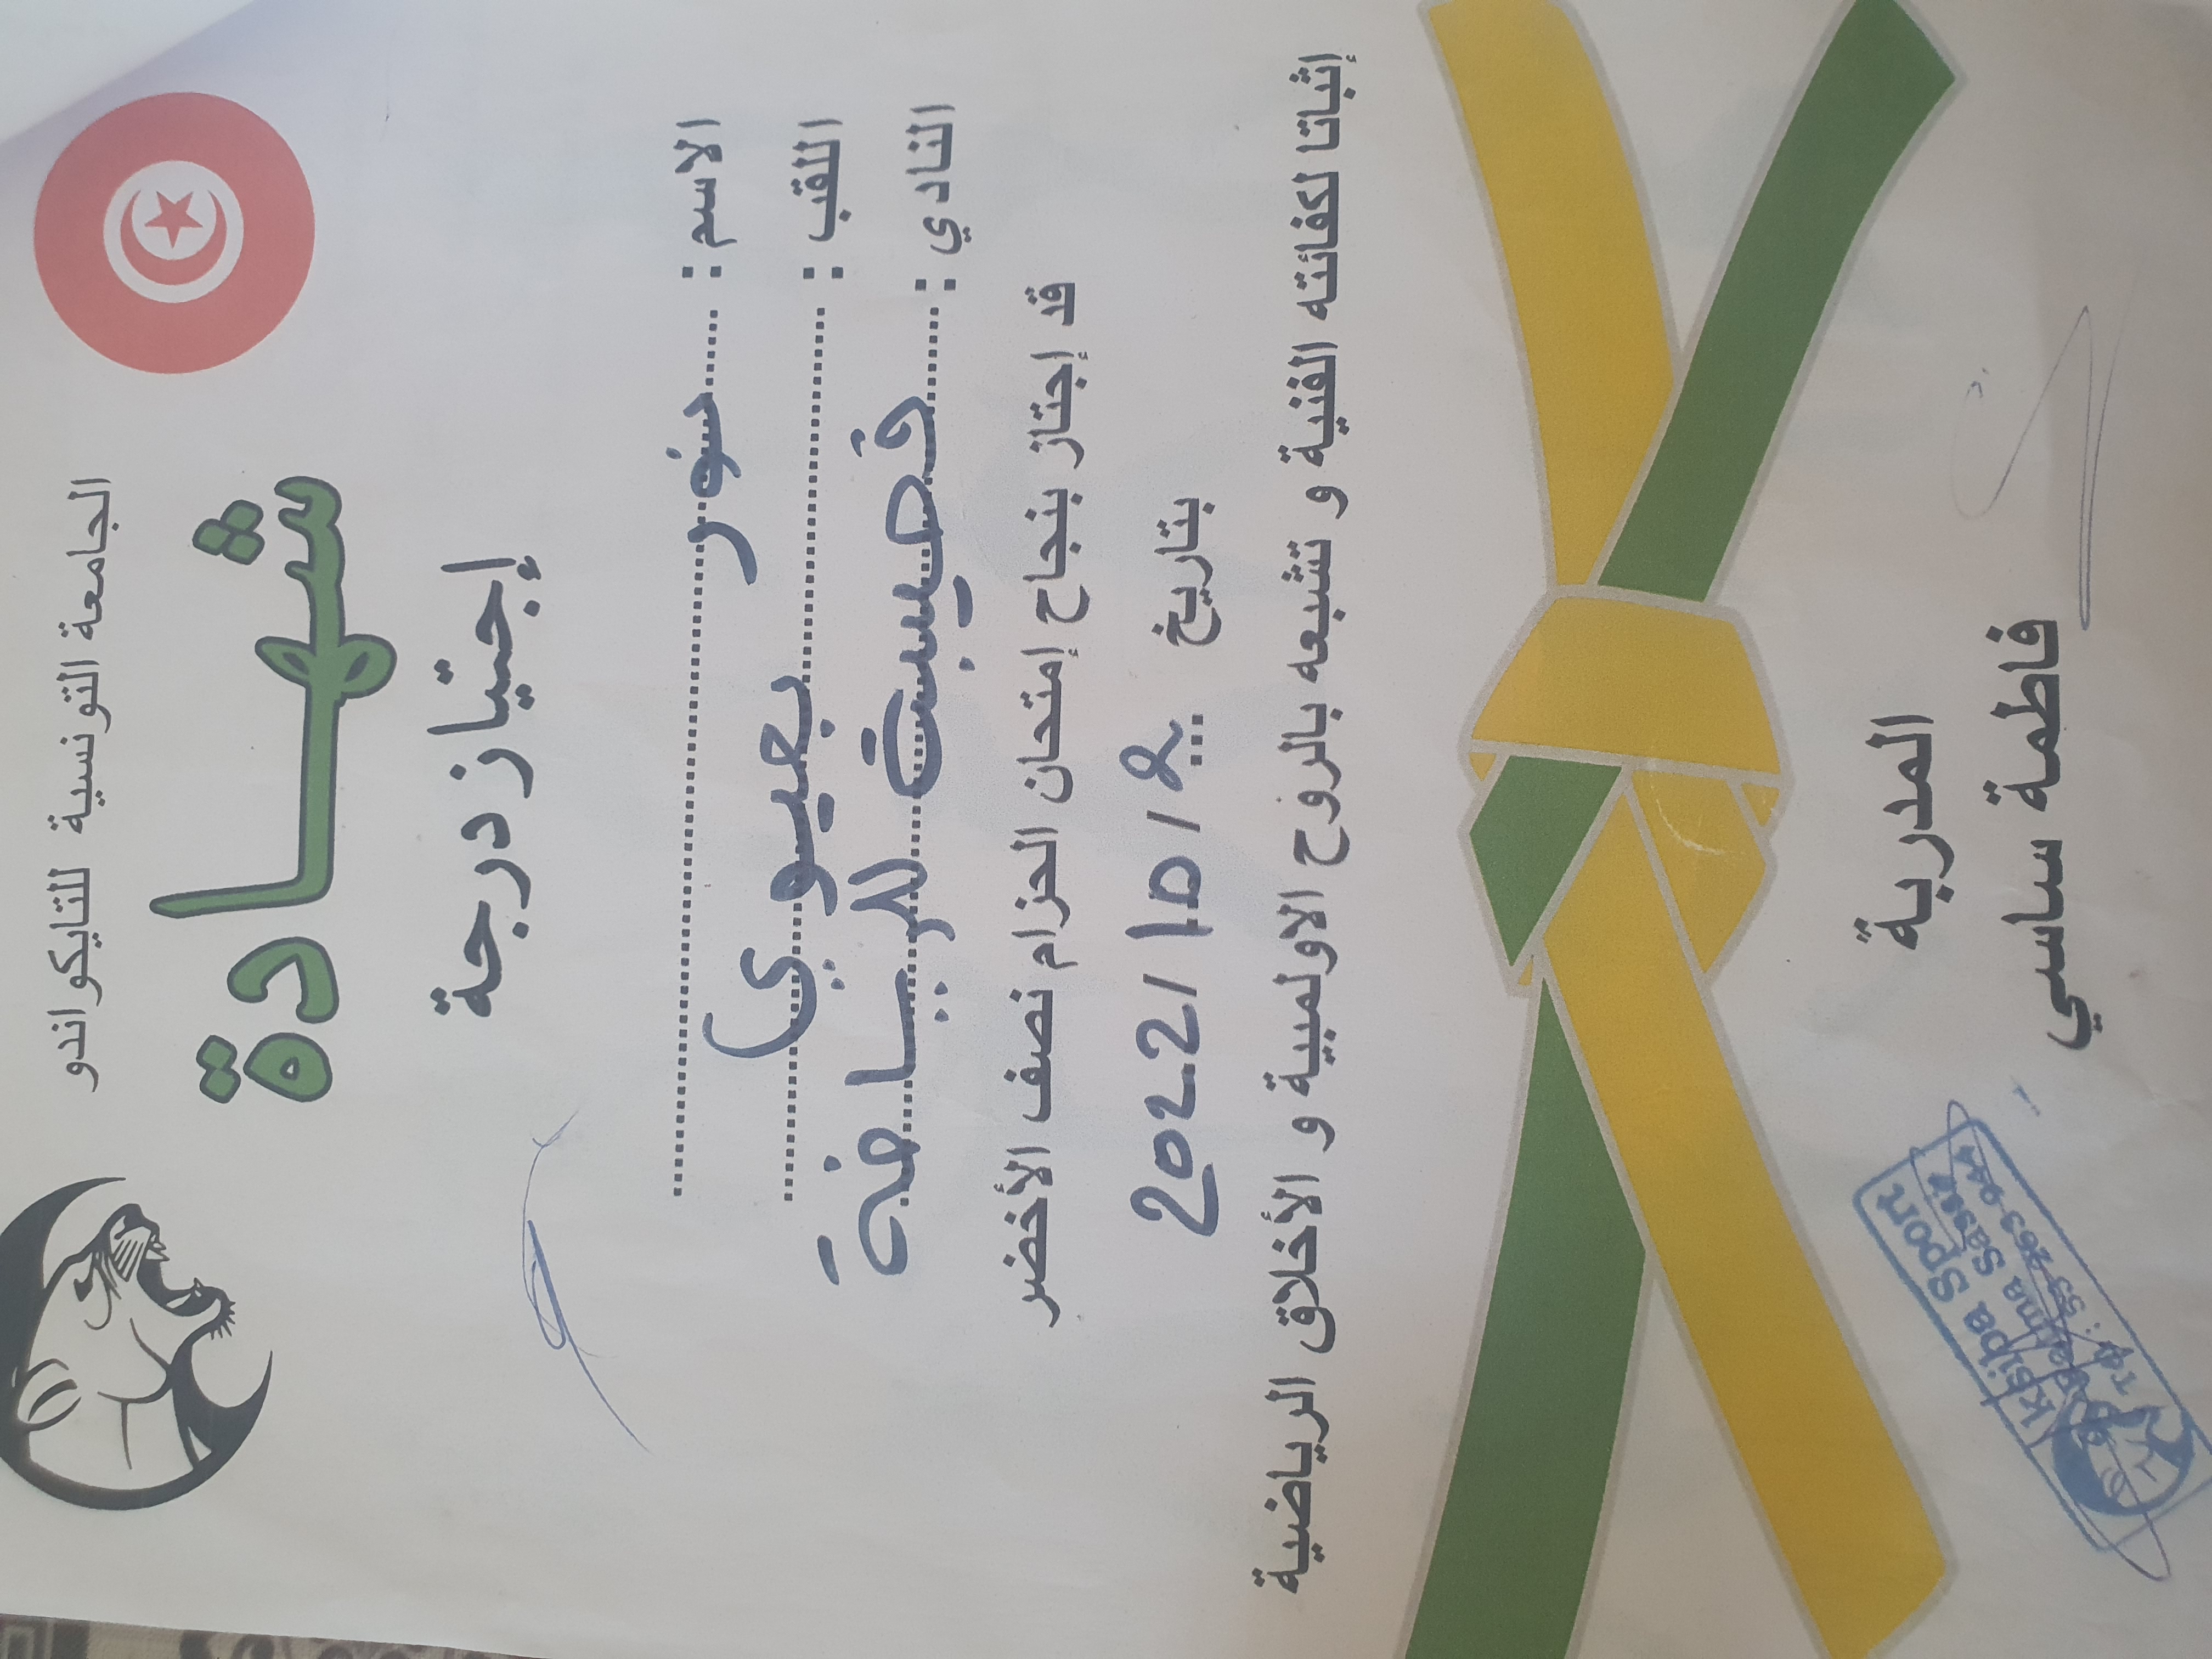 الجامعة التونسية للتايكواندو
شهادة
إجتياز درجة
الاسم : نور
اللقب : بعيوي
النادي : قصيبة للرياضة
قد إجتاز بنجاح إمتحان الحزام نصف الأخضر
بتاريخ 2022/10/2
إثباتا لكفائته الفنية و تشبعه بالروح الاولمبية و الأخلاق الرياضية
المدربة
فاطمة ساسي
Ksiba Sport
Fatma Sassi